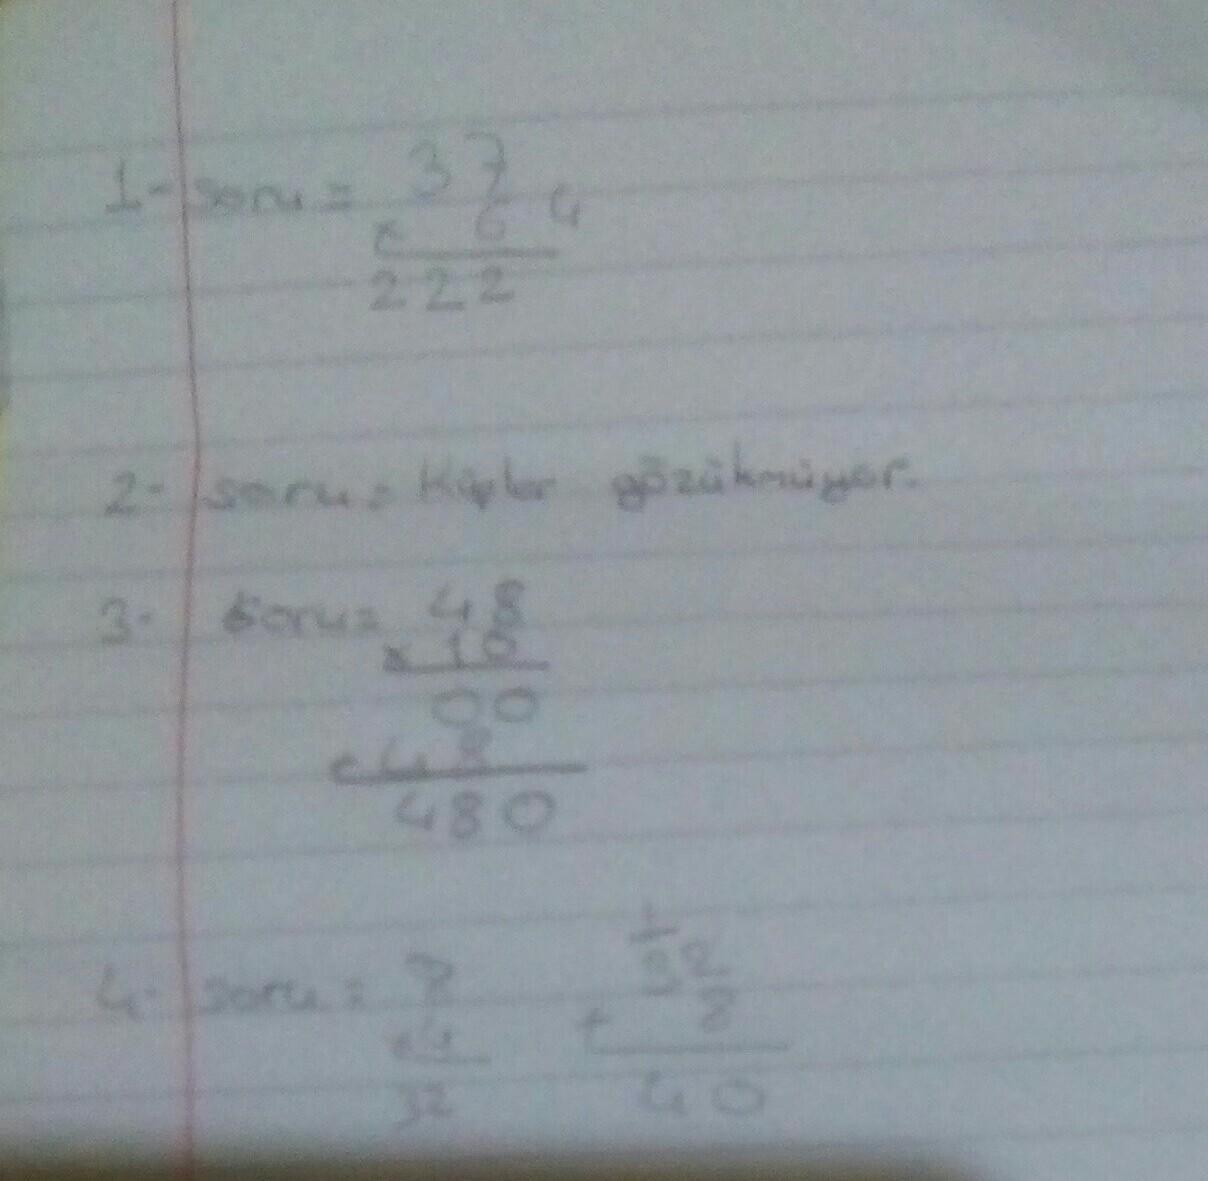 1- soru = 37
x 6 4
222
2- soru = Küpler gözükmüyor.
3- soru = 48
x 10
00
+ 48
480
4- soru = 8 1
x4 32
32 + 8
40